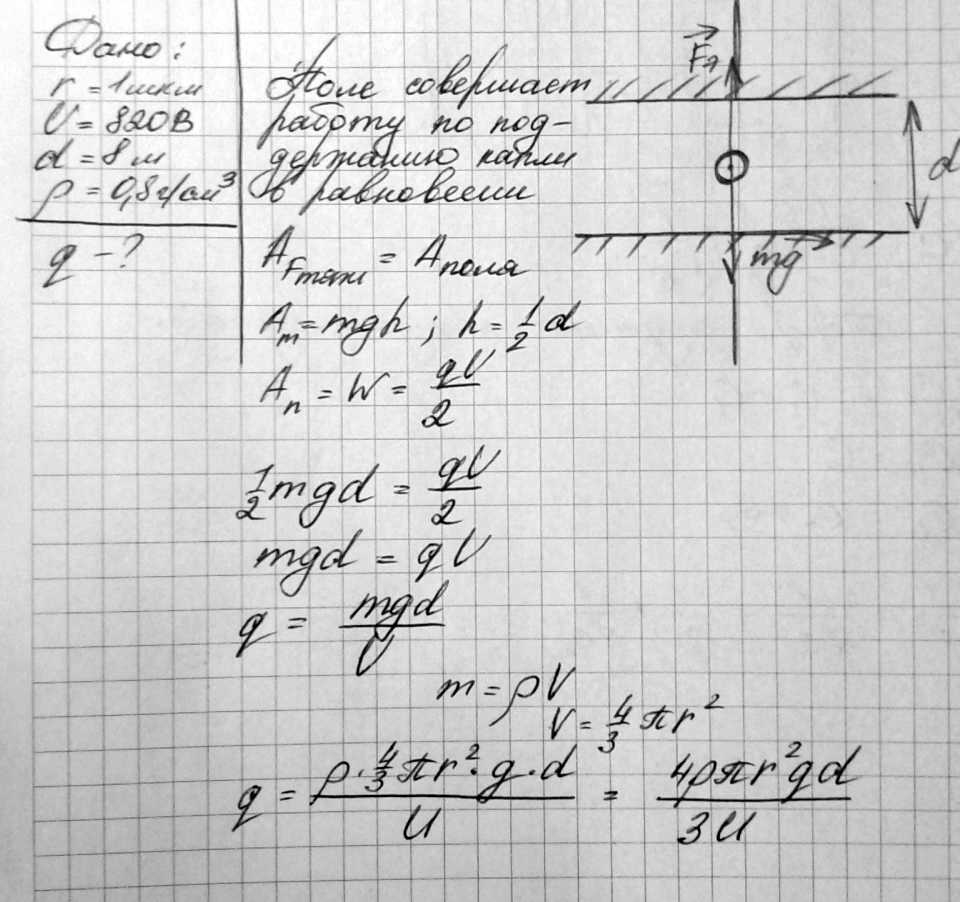 Дано:
r = 1мкм
U = 820В
d = 8 м
ρ = 0,8г/см³
q - ?
Поле совершает
работу по под-
держанию капли
в равновесии
A_Fтяж = A_поля
A_m = mgh ; h = 1/2 d
A_n = W = qU/2
1/2 mgd = qU/2
mgd = qU
q = mgd/U
m = ρV
V = 4/3 πr²
q = ρ·4/3πr²·g·d/U = 4ρπr²gd/3U
F_я
d
mg